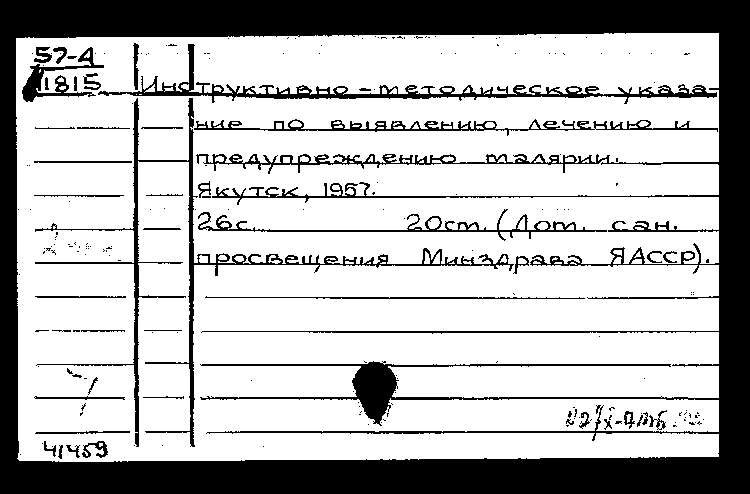 57-4
1815
Инструктивно-методическое указа-
ние по выявлению, лечению и
предупреждению малярии.
Якутск, 1957.
26с. 20см. (Дом. сан.
просвещения Минздрава ЯАССР).
41459